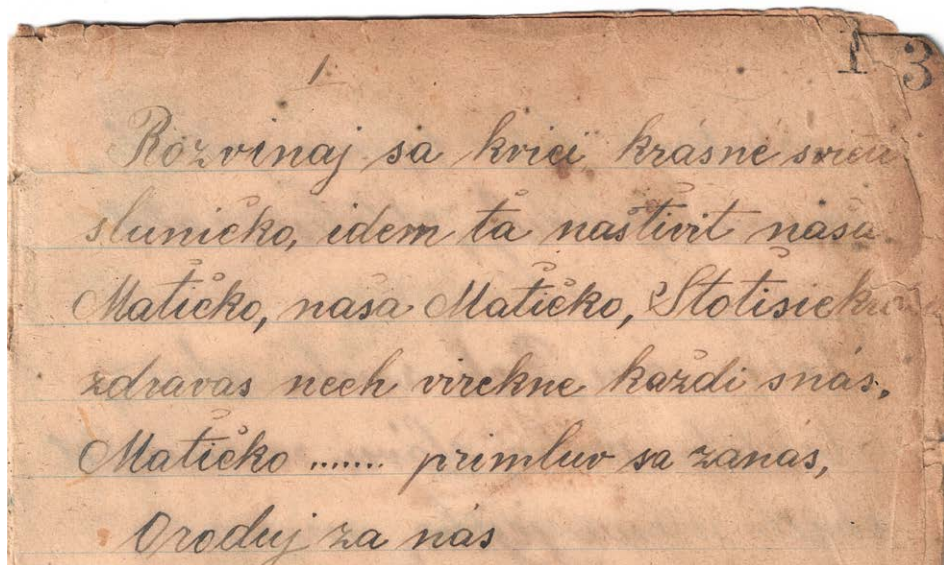 1 3
1.
Rozvinaj sa kvici krásne svieti
sluničko, idem ťa naštivit naša
Matičko, naša Matičko, 2 Štotisickrat
zdravas nech virekne každi snás,
Matičko ....... primluv sa zanás,
Oroduj za nás